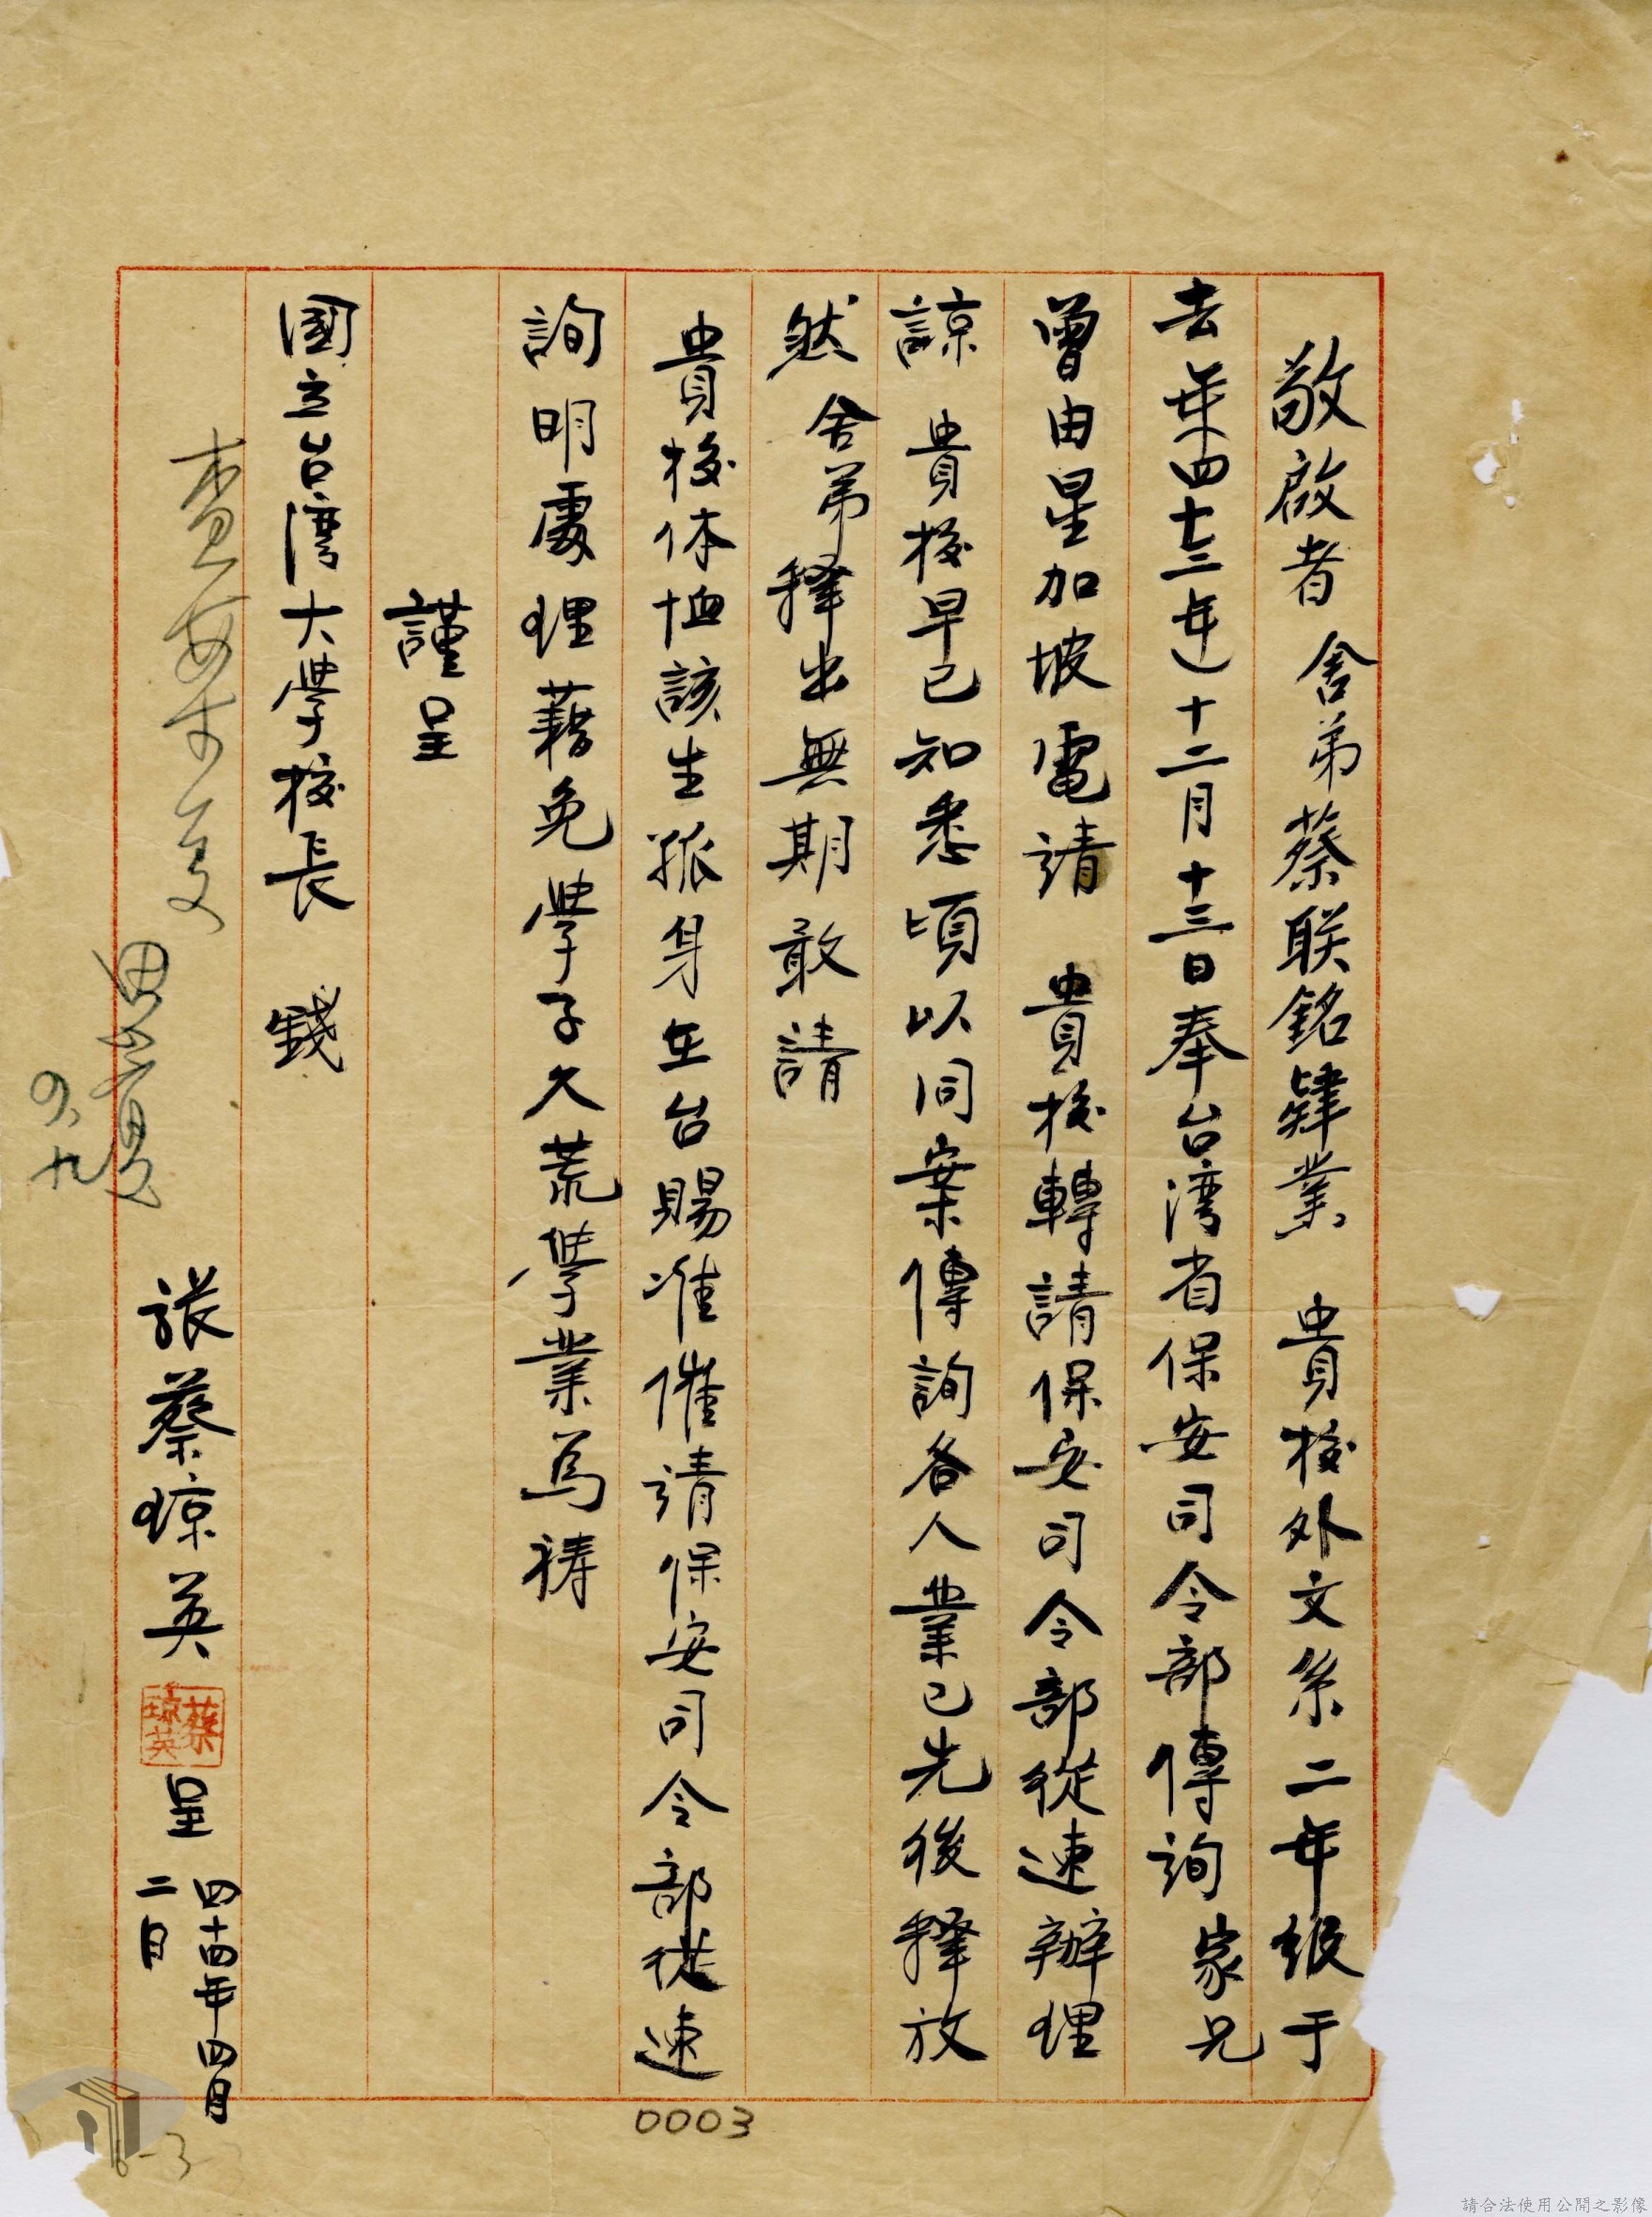 敬啟者 舍弟蔡联銘肄業 貴校外文系二年级于
去年(四十三年)十二月十三日奉台湾省保安司令部傳詢 家兄
曾由星加坡電請 貴校轉請保安司令部從速辦理
諒 貴校早已知悉頃以同案傳詢各人業已先後釋放
然 舍弟釋出無期敢請
貴校体恤該生孤身在台賜准催請保安司令部從速
詢明處理藉免學子久荒學業為祷
謹呈
國立台湾大學校長 錢
張蔡琼英
蔡琼英
呈
四十四年四月
二日
0003
請合法使用公開之影像